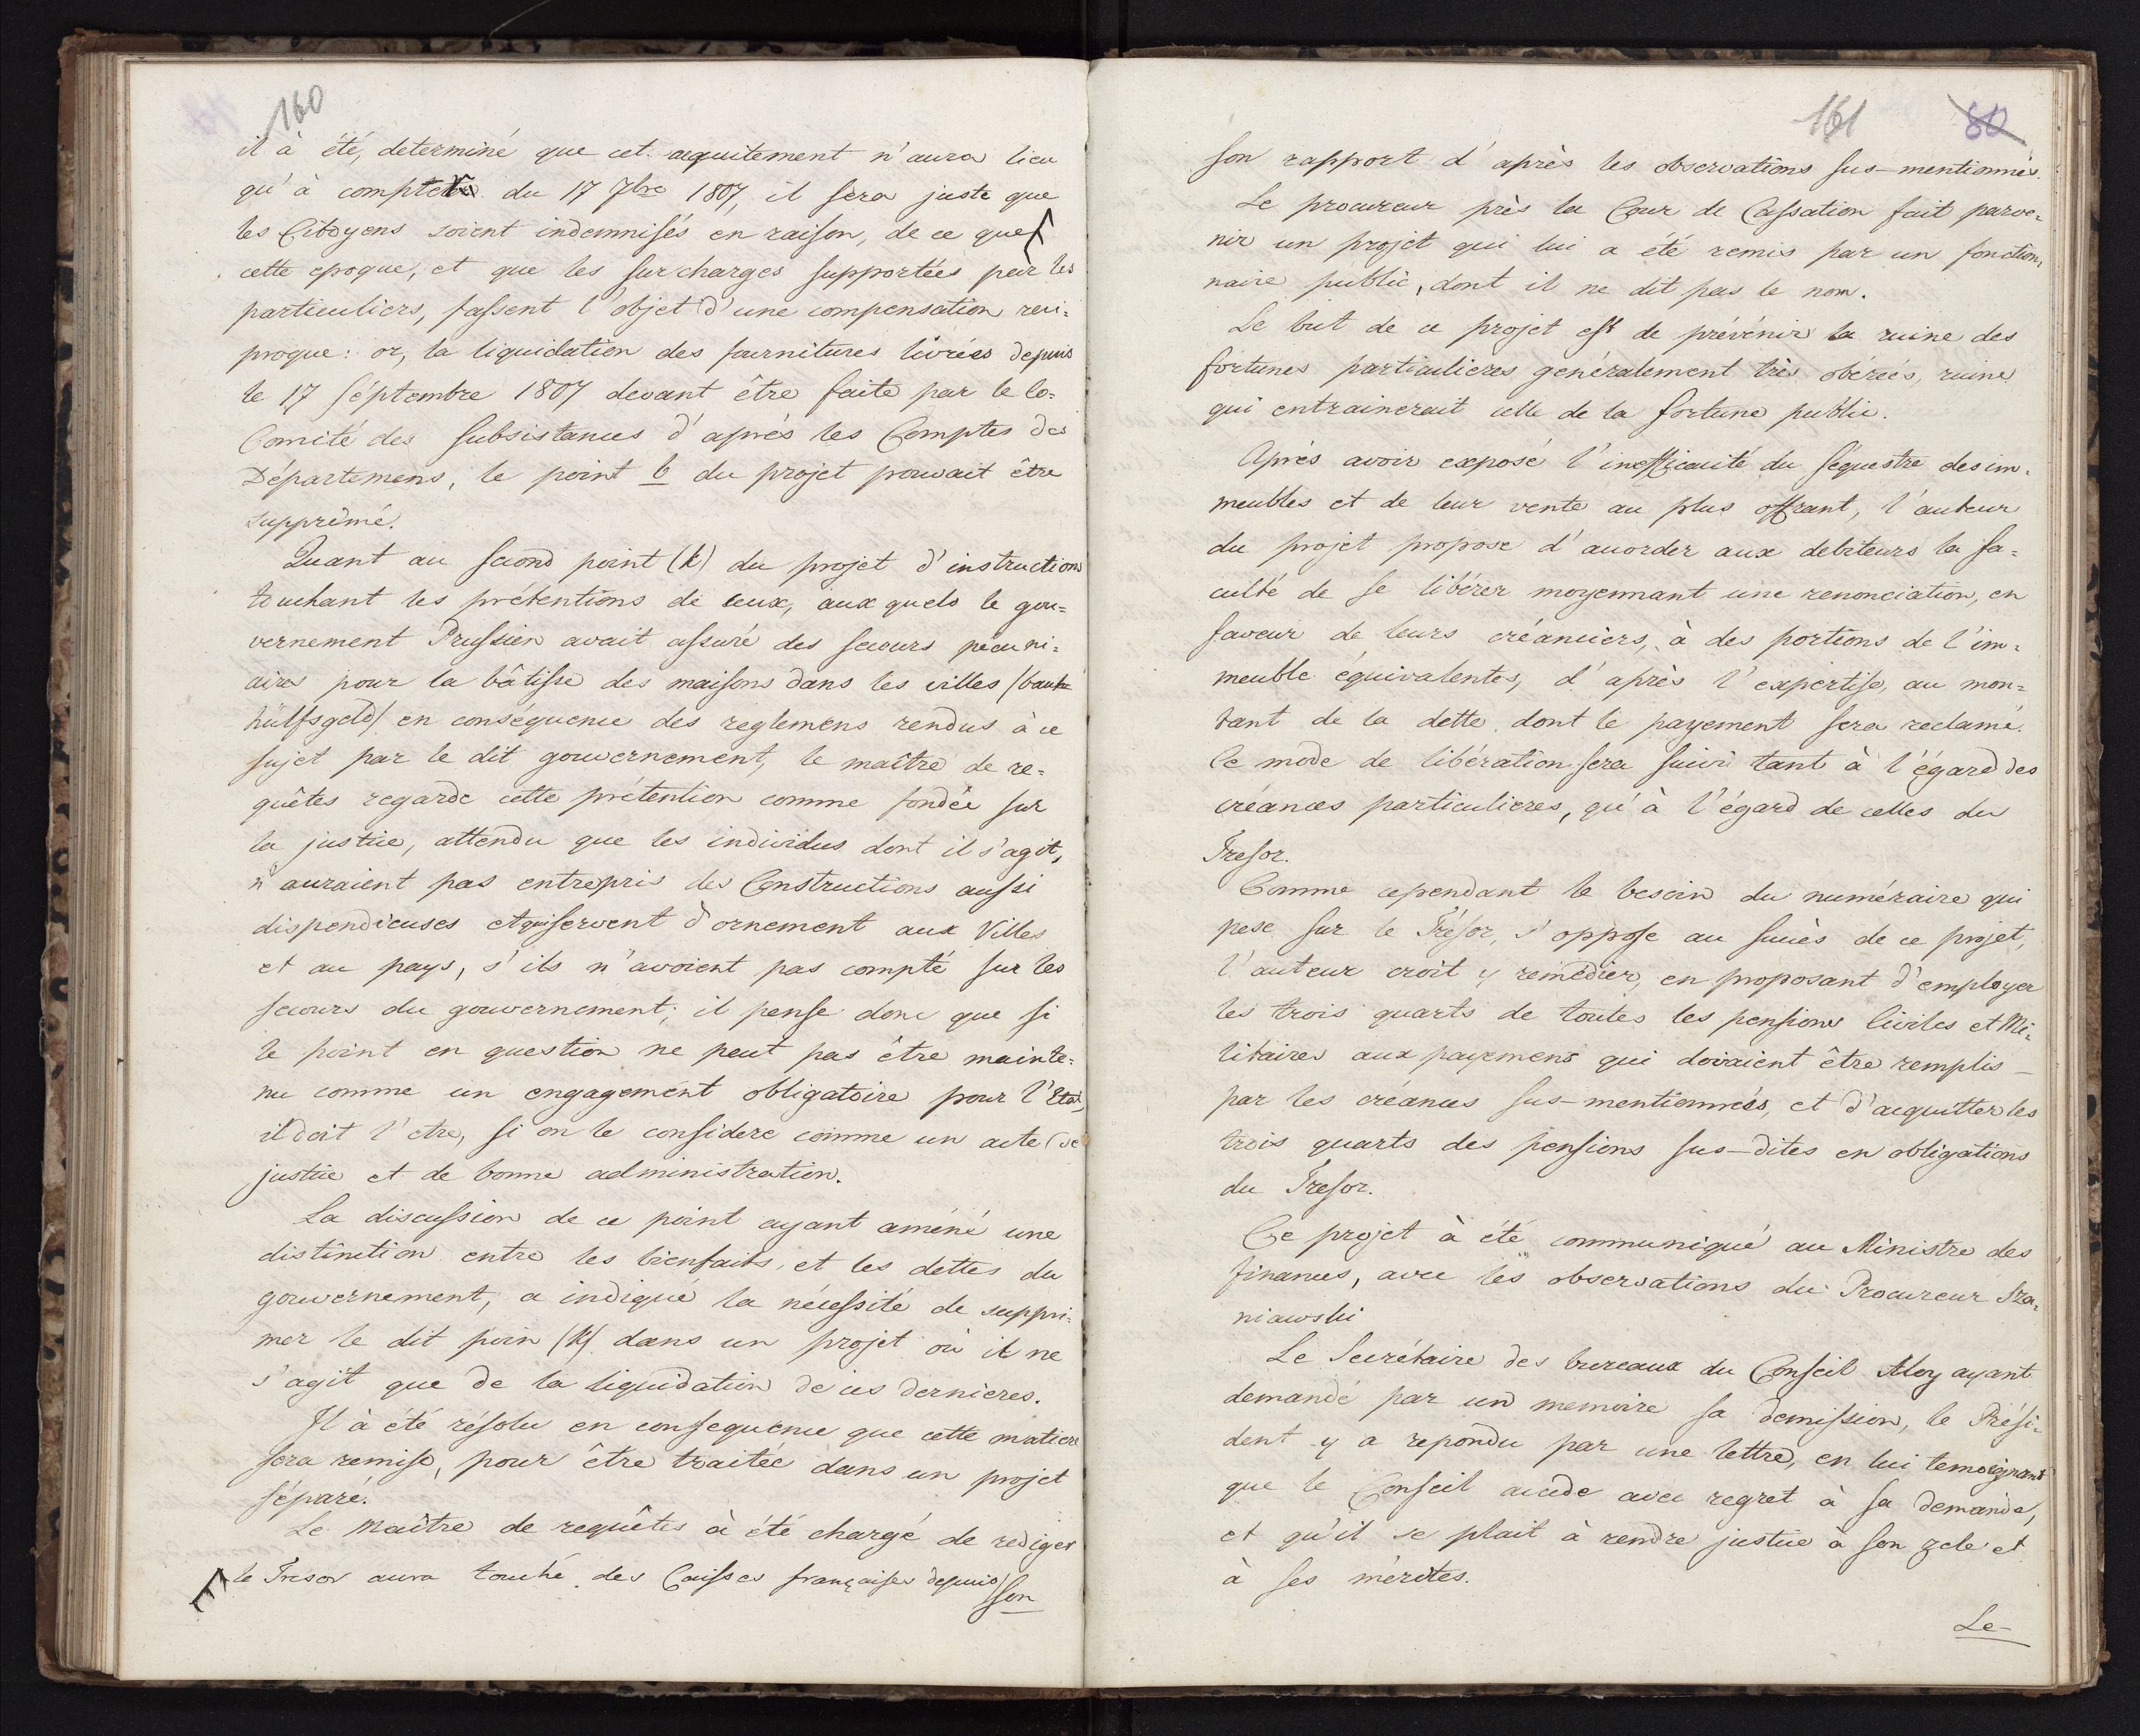 160
il à été, determiné que cet aequitement n'aura lieu
qu'à compter du 17 7bre 1807, il sera juste que
les Citoyens soient indemnisés en raison, de ce que
cette epoque, et que les surcharges supportées par les
particuliers, fassent l'objet d'une compensation reci=
proque: or, la liquidation des fournitures livrées depuis
le 17 Séptembre 1807 devant être faite par le Co=
Comité des subsistances d'aprés les Comptes des
Départemens, le point b du projet pouvait être
supprimé.
Quant au second point (k) du projet d'instruction
touchant les prétentions de ceux, aux quels le gou=
vernement Prussien avait assuré des secours pécuni=
aires pour la bâtisse des maisons dans les villes (bau
hülfsgeld) en conséquence des reglemens rendus à ce
sujet par le dit gouvernement, le maître de re=
quêtes regarde cette prétention comme fondée sur
la justice, attendu que les individus dont il s'agit,
n'auraient pas entrepris des Constructions aussi
dispendieuses et qui servent d'ornement aux Villes
et au pays, s'ils n'avoient pas compté sur les
secours du gouvernement; il pense donc que si
le point en question ne peut pas être mainte=
nu comme un engagement obligatoire pour l'Etat,
il doit l'etre, si on le considere comme un acte de
justice et de bonne administration.
La discussion de ce point ayant améné une
distinction entre les bienfaits, et les dettes du
gouvernement, a indiqué la nécessité de suppri=
mer le dit poin (k) dans un projet où il ne
s'agit que de la liquidation de ces dernieres.
Il à été résolu en consequence que cette matiere
sera remise, pour être traitée dans un projet
séparé.
Le Maître de requêtes à été chargé de rediger
le Tresor aura touché des Caisses françaises depuis
son
161 80
son rapport d'après les observations sus-mentionnés.
Le procureur près la Cour de Cassation fait parve=
nir un projet qui lui a été remis par un fonction=
naire public, dont il ne dit pas le nom.
Le but de ce projet est de prévénir la ruine des
fortunes particulieres genéralement très obérées, ruine
qui entrainerait celle de la fortune public.
Après avoir exposé l'inefficacité du séquestre des im=
meubles et de leur vente au plus offrant, l'auteur
du projet propose d'accorder aux debiteurs la fa=
culté de se libérer moyennant une renonciation, en
faveur de leurs créanciers, à des portions de l'im=
meuble équivalentes, d'après l'expertise, au mon=
tant de la dette dont le payement sera reclamé.
Ce mode de libération sera suivi tant à l'égard des
créances particulieres, qu'à l'égard de celles du
Tresor.
Comme cependant le besoin du numéraire qui
pese sur le Trésor, s'oppose au succès de ce projet,
l'auteur croit y remédier, en proposant d'employer
les trois quarts de toutes les pensions Civiles et Mi=
litaires aux payemens qui dovaient être remplis
par les créances sus-mentionnées, et d'acquitter les
trois quarts des pensions sus-dites en obligations
du Tresor.
Ce projet à été communiqué au Ministre des
finances, avec les observations du Procureur Sza=
niawski
Le Secrétaire des bureaux du Conseil Aloy ayant
demandé par un memoire sa demission, le Prési=
dent y a repondu par une lettre, en lui temoignant
que le Conseil accede avec regret à sa demande,
et qu'il se plait à rendre justice à son zele et
à ses mérites.
Le